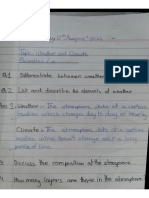 Topic: Weather and Climate
Q1 Differentiate between weather
Q2 List and describe the element of weather
Ans: Weather - The atmospheric state of a certain
location which changes day to day or hourly
Climate - The atmospheric state of a certain
location which doesn't change and a long
period of time.
3 Discuss the composition of the atmosphere
4 How many layers are there in the atmosphere